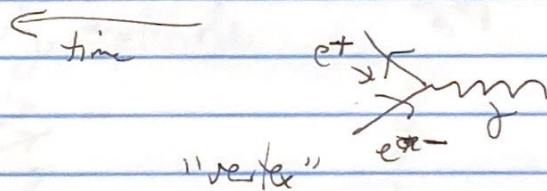 time
e+
γ
e-
"vertex"